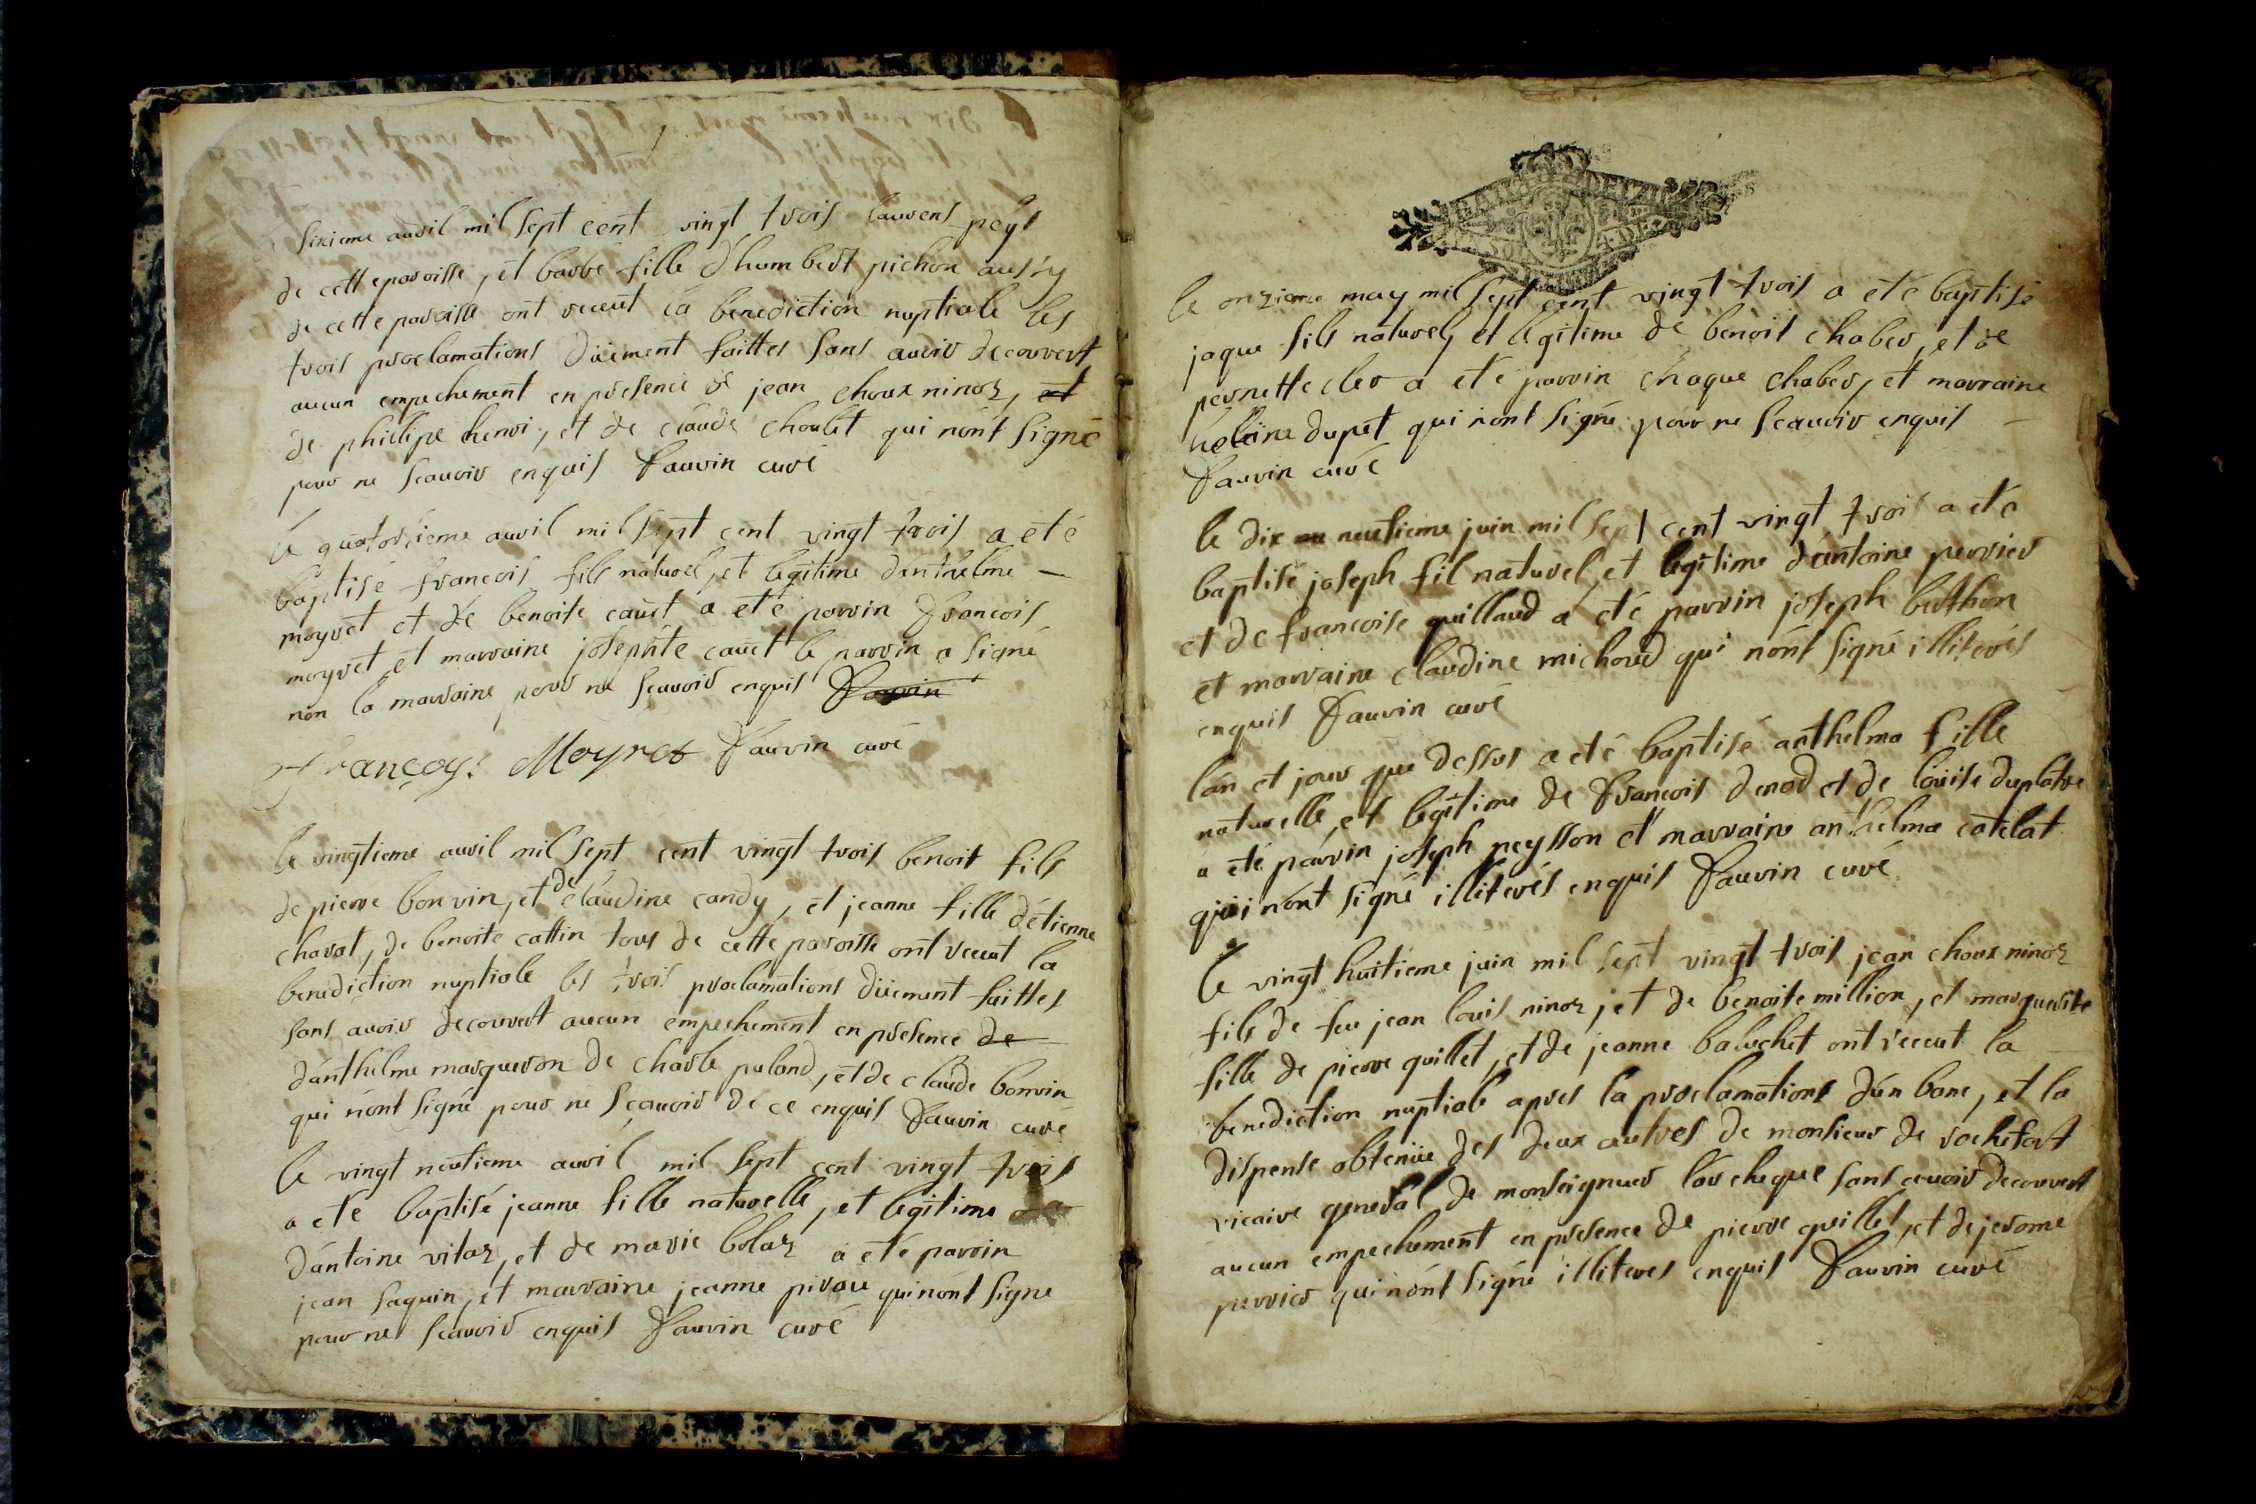 sixieme avril mil sept cent vingt trois laurens peyt
de cette paroisse, et barbe fille d'humbert pichon aussy
de cette paroisse ont receut la benediction nuptiale les
trois proclamations düement faittes sans avoir decouvert
aucun empechement en presence de jean choux ninoz, et
de philipe henri, et de claude choulet qui n'ont signé
pour ne scauoir enquis Fauvin curé
le quatorzieme auril mil sept cent vingt trois a eté
baptisé francois fils naturel, et legitime danthelme
moyret et de benoite cauet a eté parrin francois
moyret et marraine josephte cauet le parrin a signé
non la marraine pour ne scauoir enquis Fauvin
Françoys Moyret Fauvin curé
le vingtieme auril mil sept cent vingt trois benoit fils
de pierre bonvin, et de claudine candy, et jeanne fille d'étienne
chavat, de benoite cattin tous de cette paroisse ont receut la
benediction nuptiale les trois proclamations düement faittes
sans avoir decouvert aucun empechement en presence de
d'anthelme marqueron de charle puland, et de claude bonvin
qui n'ont signé pour ne sçauoir de ce enquis Fauvin curé
le vingt neufieme auril mil sept cent vingt trois
a eté baptisé jeanne fille naturelle, et legitime de
d'antoine vitoz, et de marie boloz a eté parrin
jean saquin, et marraine jeanne pivou qui n'ont signe
pour ne scauoir enquis Fauvin curé
le onzieme may mil sept cent vingt trois a eté baptisé
jaque fils naturel, et legitime de benois chaber, et de
pernette cler a eté parrin chaque chaber, et marraine
heleine dupet qui n'ont signé pour ne scauoir enquis
Fauvin curé
le dix neufieme juin mil sept cent vingt trois a eté
baptisé joseph fil naturel, et legitime d'antoine perrier
et de francoise quillaud a eté parrin joseph buthon
et marraine claudine michoud qui n'ont signé illiterés
enquis Fauvin curé
l'an et jour que dessus a eté baptisé anthelma fille
naturelle, et legitime de francois denod et de loüise duplatre
a eté parrin joseph peysson et marraine anthelma catelat
qui n'ont signé illiterés enquis Fauvin curé
le vingt huitieme juin mil sept vingt trois jean choux ninoz
fils de feu jean louis ninoz, et de benoite million, et marguerite
fille de pierre quillet, et de jeanne baluchet ont receut la
benediction nuptiale apres la proclamations d'un banc, et la
dispense obtenüe des deux autres de monsieur de rochefort
vicaire general de monseigneur l'archeque sans avoir decouvert
aucun empechement en presence de pierre quillet, et de jerome
perrier qui n'ont signé illiteres enquis Fauvin curé